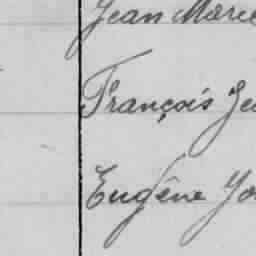 Jean Marie
François Je
Eugène Jo